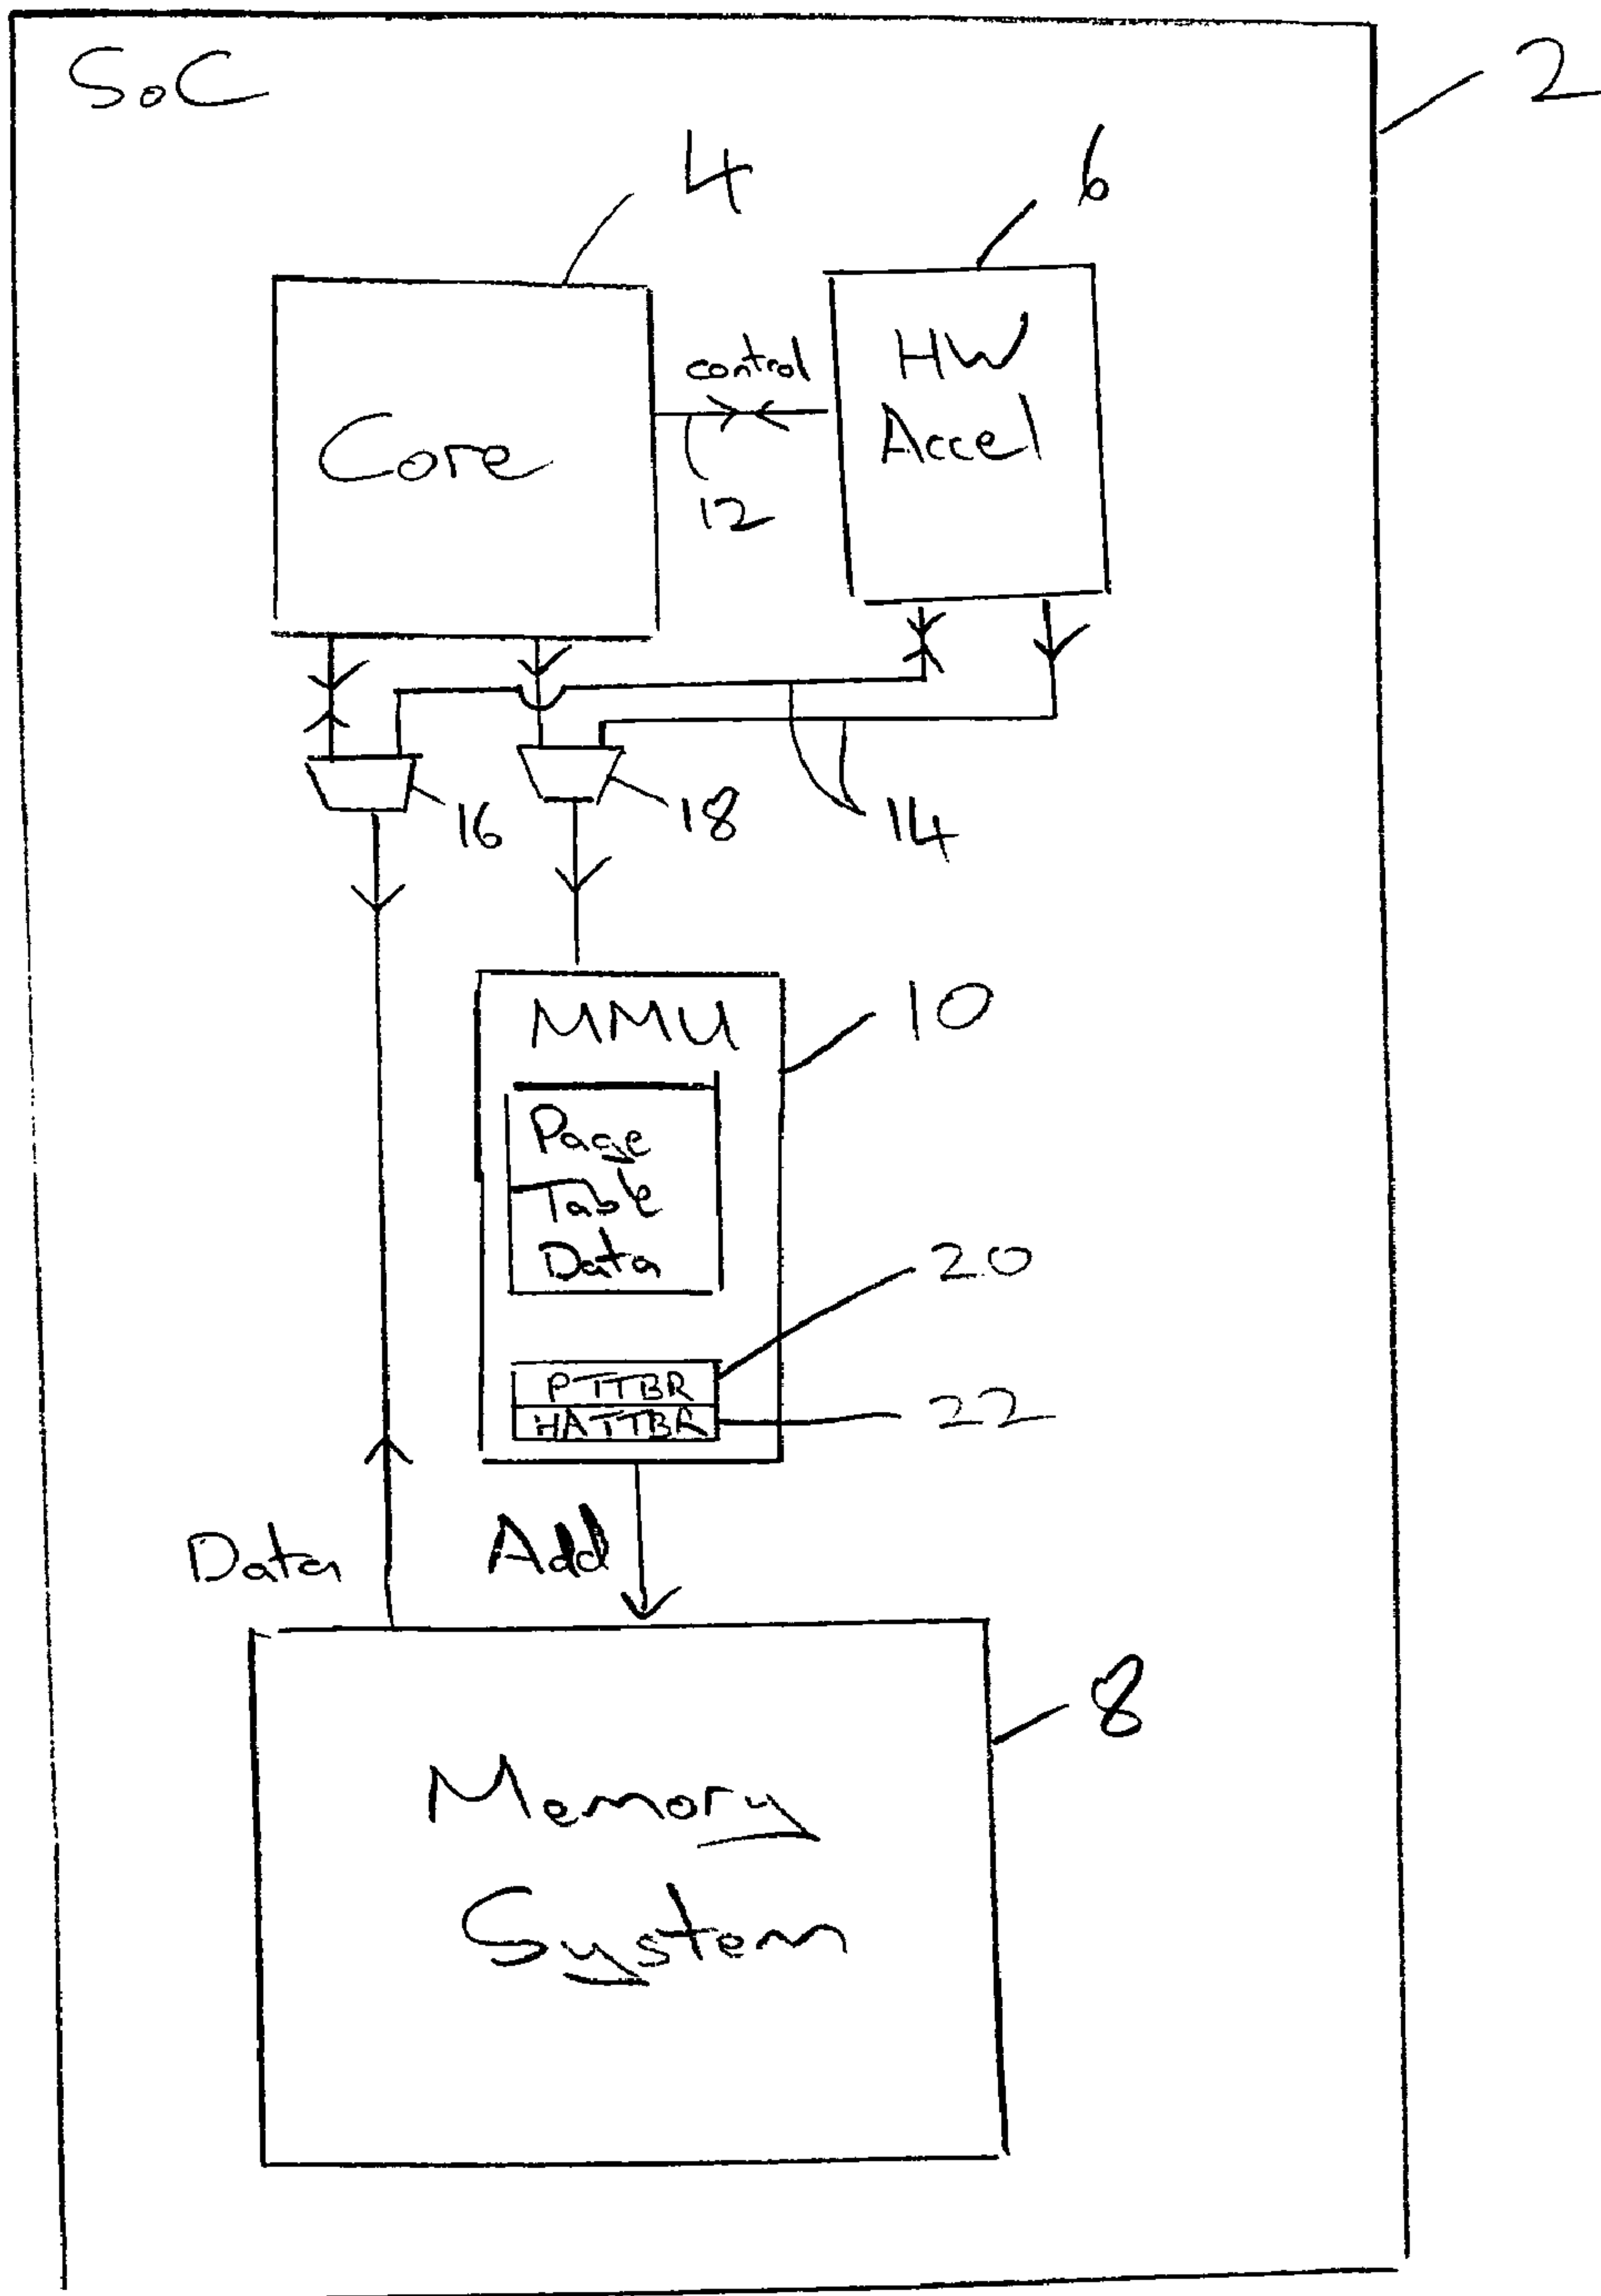 SoC
2
4
6
Core
control
HW
Accel
12
16
18
14
MMU
10
Page
Table
Data
20
PTTBR
22
HATTBR
Data
Add
8
Memory
System